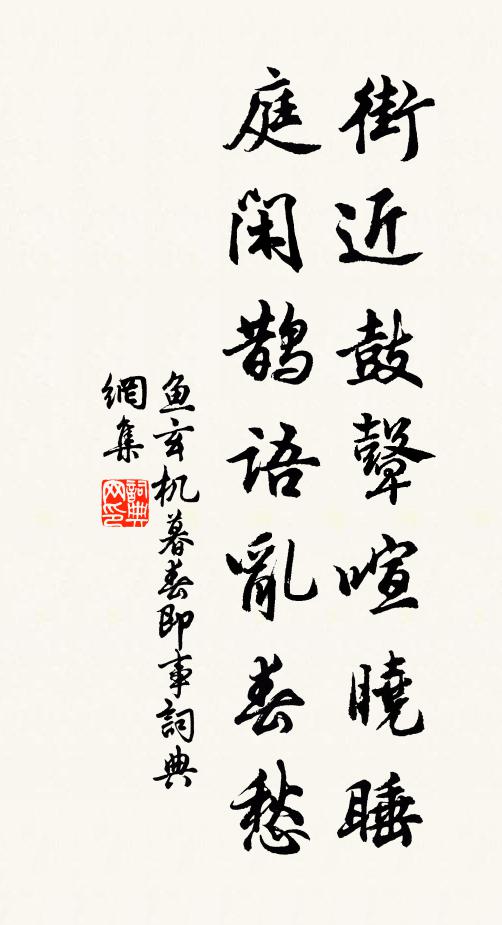 街近鼓聲喧曉睡
庭閑鵲語亂春愁
鱼玄机暮春即事詞典
網集
詞典
网印